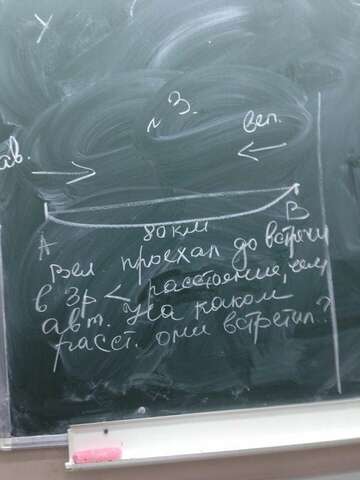 У
№ 3.
вел.
ав.
А
В
80 км
Вел проехал до встречи
в 3р < расстояние, чем
авт. На каком
расст. они встретил?